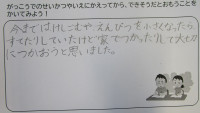 がっこうでのせいかつやいえにかえってから、できそうだとおもうことを
かいてみよう！
今まではけしごむや、えんぴつを小さくなったら
すてたりしていたけど家でつかったりして大切
につかおうと思いました。